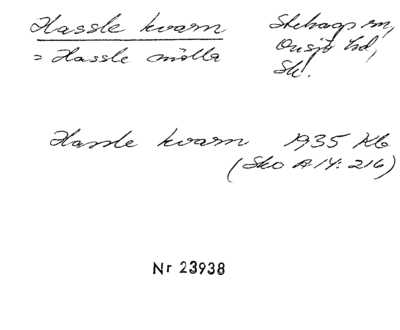 Hassle kvarn
= Hassle mölla
Stehags sn,
Onsjö hd,
Sk.
Hassle kvarn 1935 Kb
(Sko A 14: 216)
Nr 23938